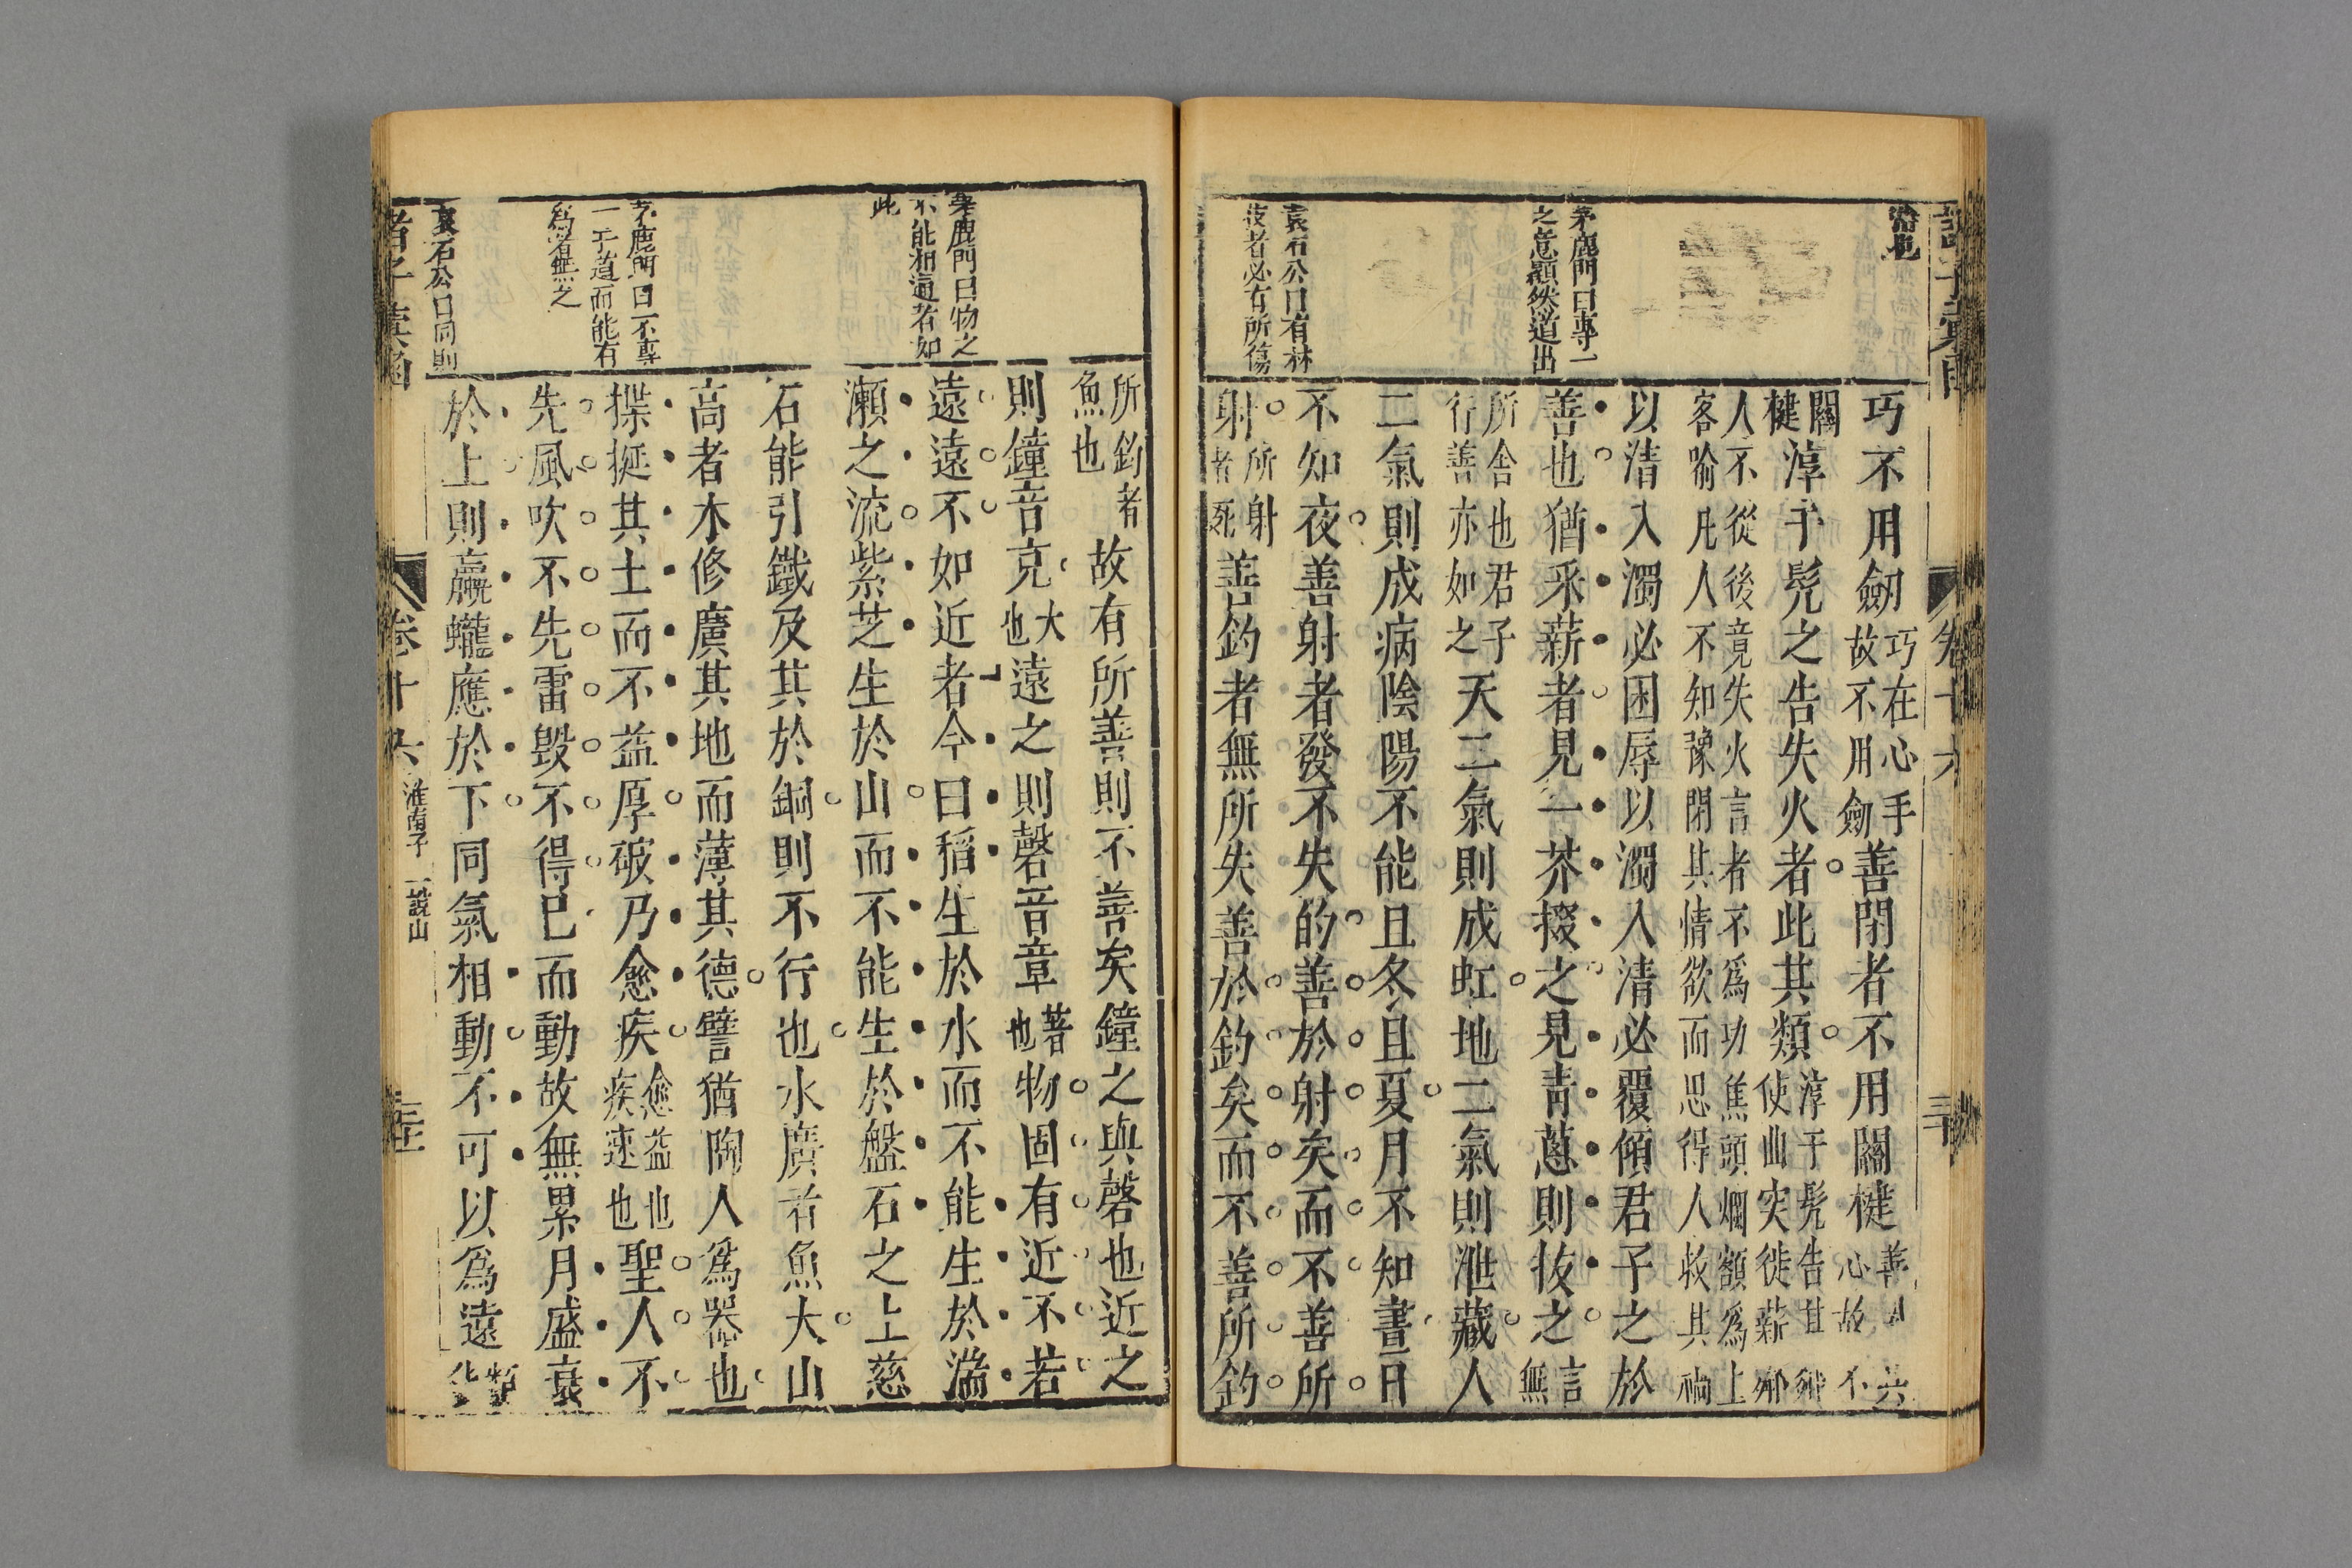 巧不用劒巧在心手故不用劒善閉者不用關楗善心故不
關楗淳于髡之告失火者此其類淳于髡告其使曲突徙薪
人不從後竟失火言者不為功焦頭爛額為上客喻凡人不知豫閉其情欲而思得人救其禍
以清入濁必困辱以濁入清必覆傾君子之於
善也猶采薪者見一芥掇之見青蔥則拔之言無
所舍也君子行善亦如之天二氣則成虹地二氣則泄藏人
二氣則成病陰陽不能且冬且夏月不知晝日
不知夜善射者發不失的善於射矣而不善所
射所射者死善釣者無所失善於釣矣而不善所釣
茅鹿門曰專一
之意顯然道出
袁石公曰有林
者必有所傷
卷十六
所釣者魚也故有所善則不善矣鐘之與磬也近之
則鐘音克大也遠之則磬音章著也物固有近不若
遠遠不如近者今曰稻生於水而不能生於湍
瀨之流紫芝生於山而不能生於盤石之上慈
石能引鐵及其於銅則不行也水廣者魚大山
高者木修廣其地而薄其德譬猶陶人為器也
揲挻其土而不益厚破乃愈疾愈益也疾速也聖人不
先風吹不先雷毀不得已而動故無累月盛衰
於上則蠃蠬應於下同氣相動不可以為遠
茅鹿門曰物之
不能相通者如
此
茅鹿門曰不專
一于道而能有
為者無之
袁石公曰同則
卷十六
淮南子
說山